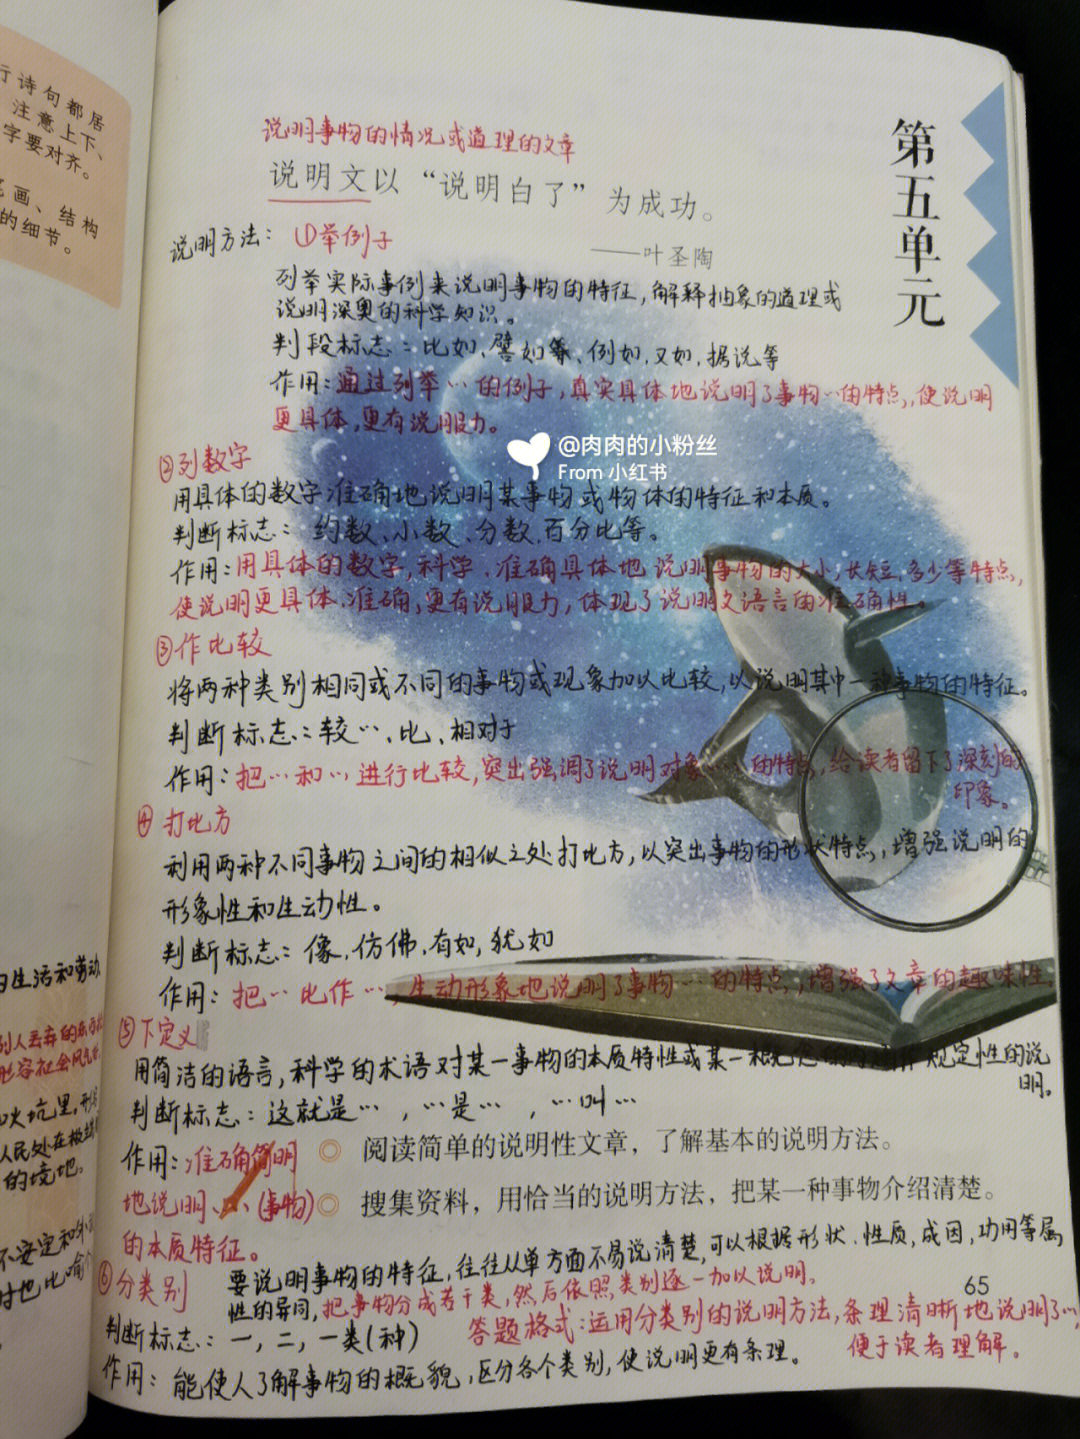 行诗句都居
注意上下、
字要对齐。
画、结构
的细节。
第五单元
说明事物的情况或道理的文章
说明文以“说明白了”为成功。
——叶圣陶
说明方法：①举例子
列举实际事例来说明事物的特征,解释抽象的道理或
说明深奥的科学知识。
判段标志：比如、譬如等、例如、又如、据说等
作用:通过列举…的例子,真实具体地说明了事物…的特点,使说明
更具体,更有说服力。
@肉肉的小粉丝
From 小红书
②列数字
用具体的数字准确地说明某事物或物体的特征和本质。
判断标志：约数、小数、分数、百分比等。
作用:用具体的数字,科学、准确具体地说明事物的大小,长短,多少等特点,
使说明更具体、准确,更有说服力,体现了说明文语言的准确性。
③作比较
将两种类别相同或不同的事物或现象加以比较,以说明其中一种事物的特征。
判断标志：较…、比、相对于
作用:把…和…进行比较,突出强调了说明对象…的特点,给读者留下了深刻的
印象。
④打比方
利用两种不同事物之间的相似之处打比方,以突出事物的形状特点,增强说明的
形象性和生动性。
判断标志：像、仿佛、有如,犹如
作用:把…比作…,生动形象地说明了事物…的特点,增强了文章的趣味性。
⑤下定义
用简洁的语言,科学的术语对某一事物的本质特性或某一概念 规定性的说
明。
判断标志：这就是…,…是…,…叫…
作用:准确简明
地说明…(事物)
的本质特征。
阅读简单的说明性文章，了解基本的说明方法。
搜集资料，用恰当的说明方法，把某一种事物介绍清楚。
⑥分类别
要说明事物的特征,往往从单方面不易说清楚,可以根据形状、性质,成因,功用等属
性的异同,把事物分成若干类,然后依照类别逐一加以说明。
判断标志：一,二,一类(种)
答题格式:运用分类别的说明方法,条理清晰地说明了…,
便于读者理解。
作用:能使人了解事物的概貌,区分各个类别,使说明更有条理。
65
生活和劳动
形容社会风气
火坑里,
人民处在
的境地。
不安定和外